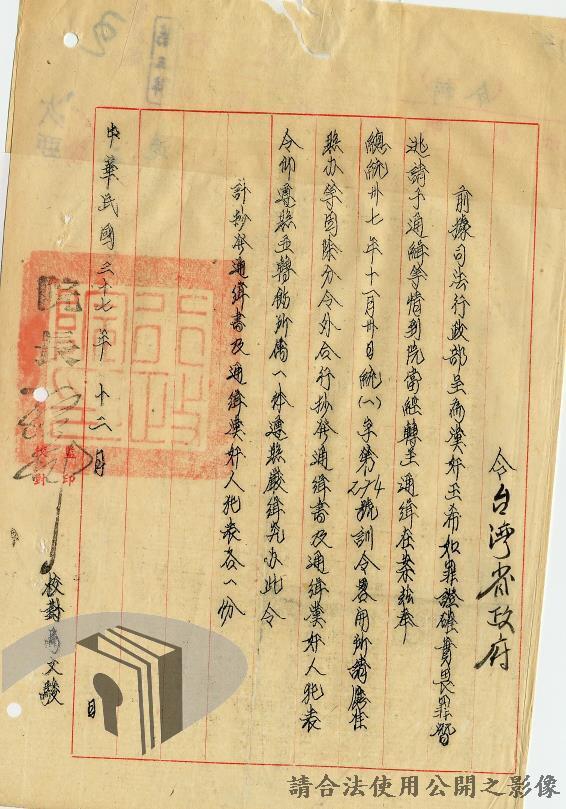 令台灣省政府
前據司法行政部呈為漢奸王希如罪證確實畏罪潛
逃請予通緝等情到院當經轉呈通緝在案茲奉
總統卅七年十一月卅日統(一)字第274號訓令畧開所請應准
照办等因除分令外合行抄發通緝書及通緝漢奸人犯表
令仰遵照並轉飭所屬一体遵照嚴緝究办此令
計抄發通緝書及通緝漢奸人犯表各一份
中華民國三十七年十二月 日
院長
監印
校對
校對 文驗
請合法使用公開之影像